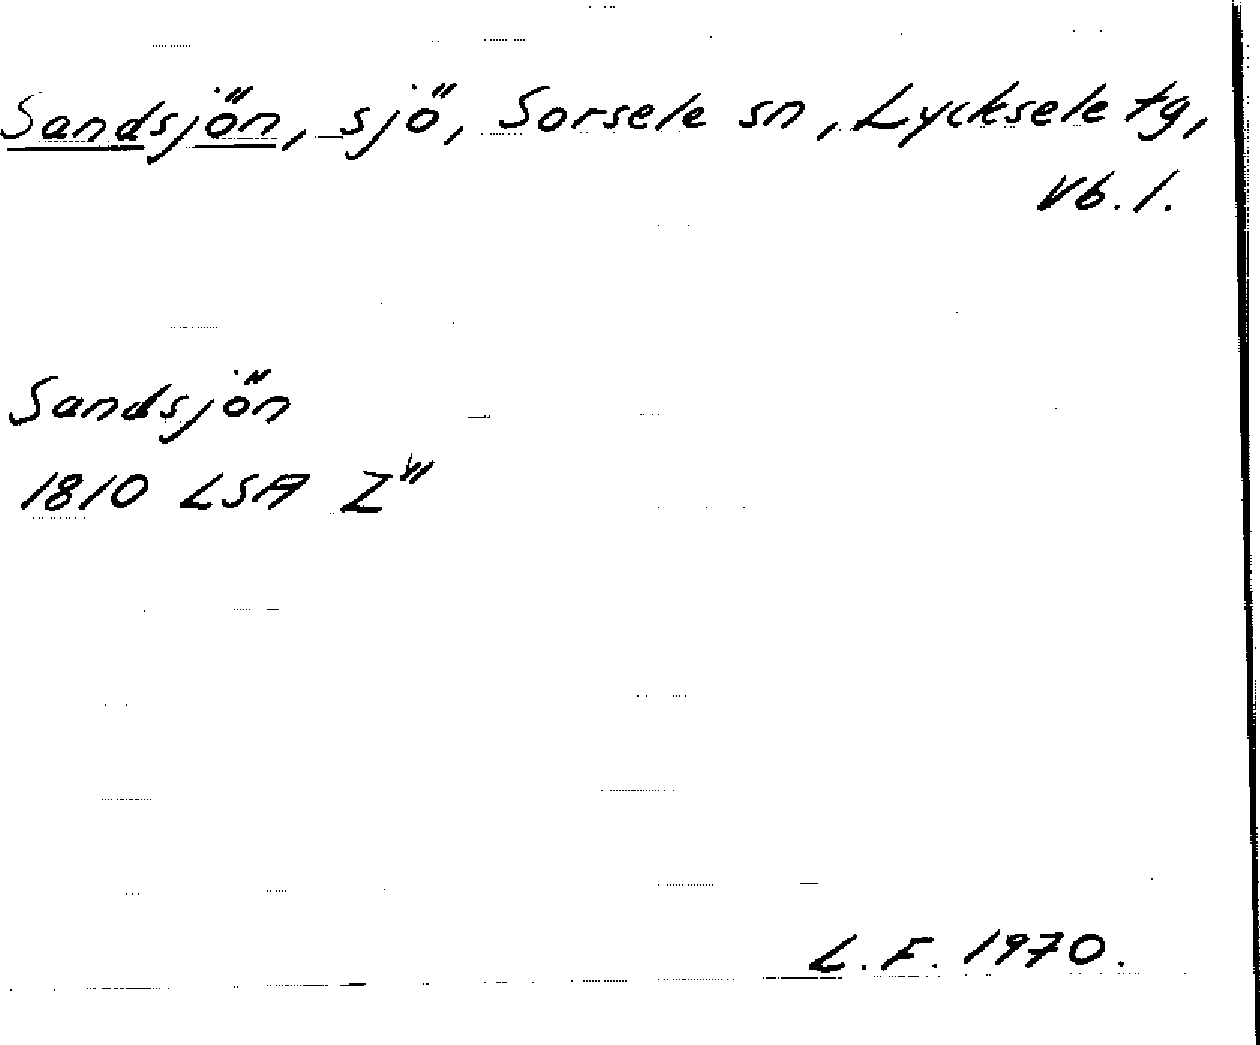 Sandsjön, sjö, Sorsele sn, Lycksele tg,
Vb. l.
Sandsjön
1810 LSA Z"
L. F. 1970.